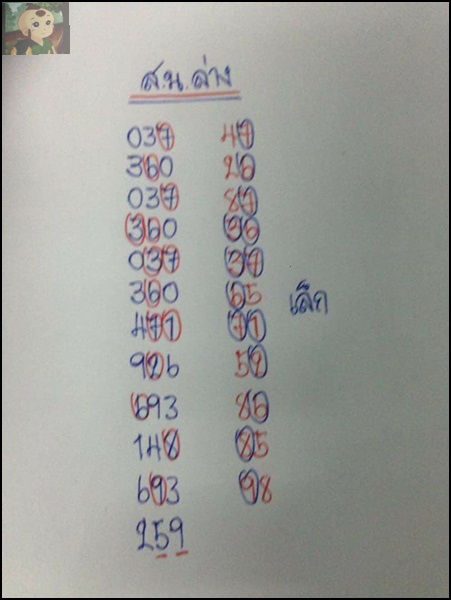 ส.น. ล่าง
037 47
360 26
037 87
360 36
037 37
360 65 เล็ก
471 71
926 52
693 86
148 85
693 98
259